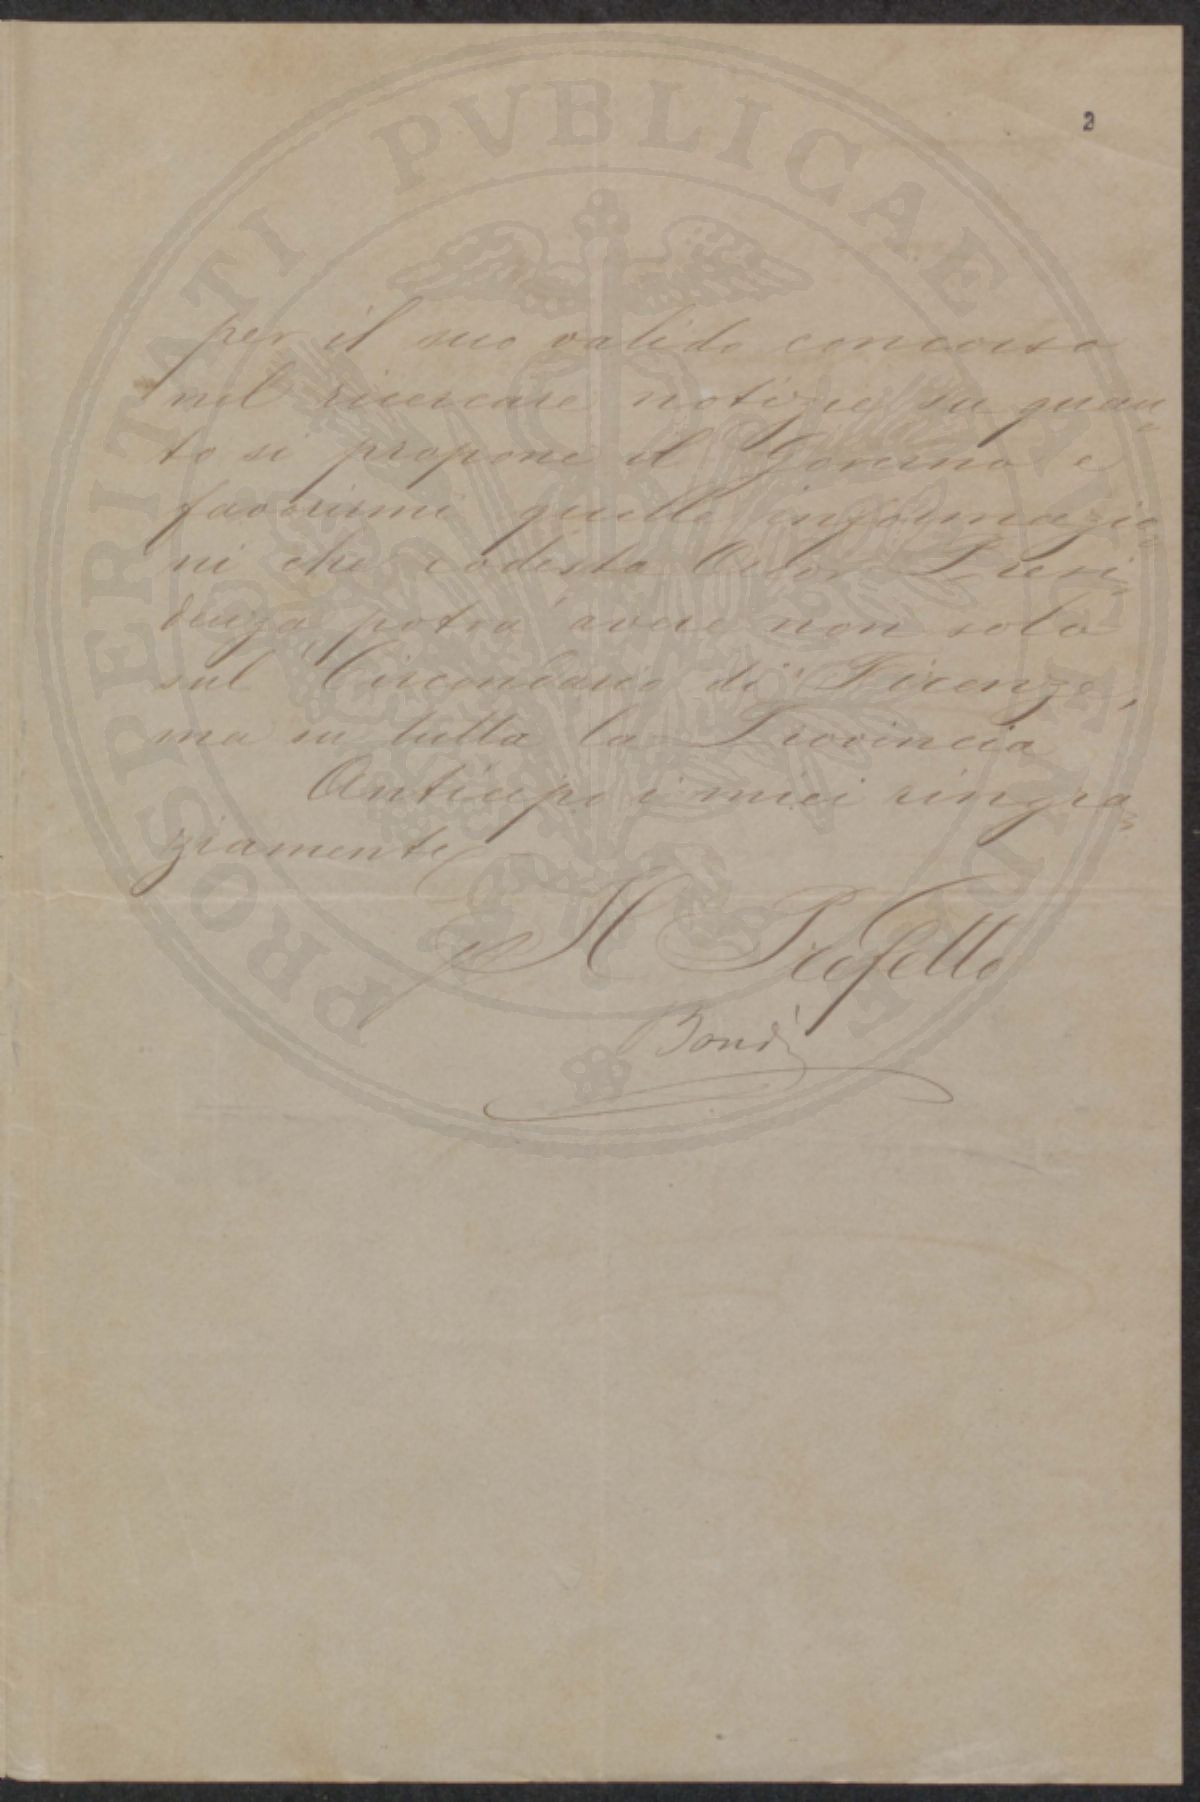 2
per il suo valido concorso
nel ricercare notizie su quan=
to si propone il Governo e
favorirmi quelle informazio=
ni che codesta Onor Presi=
denza potrà avere non solo
sul Circondario di Firenze,
ma su tutta la Provincia
Anticipo i miei ringra=
ziamenti
Il Prefetto
Bondi
PROSPERITATI PVBLICAE